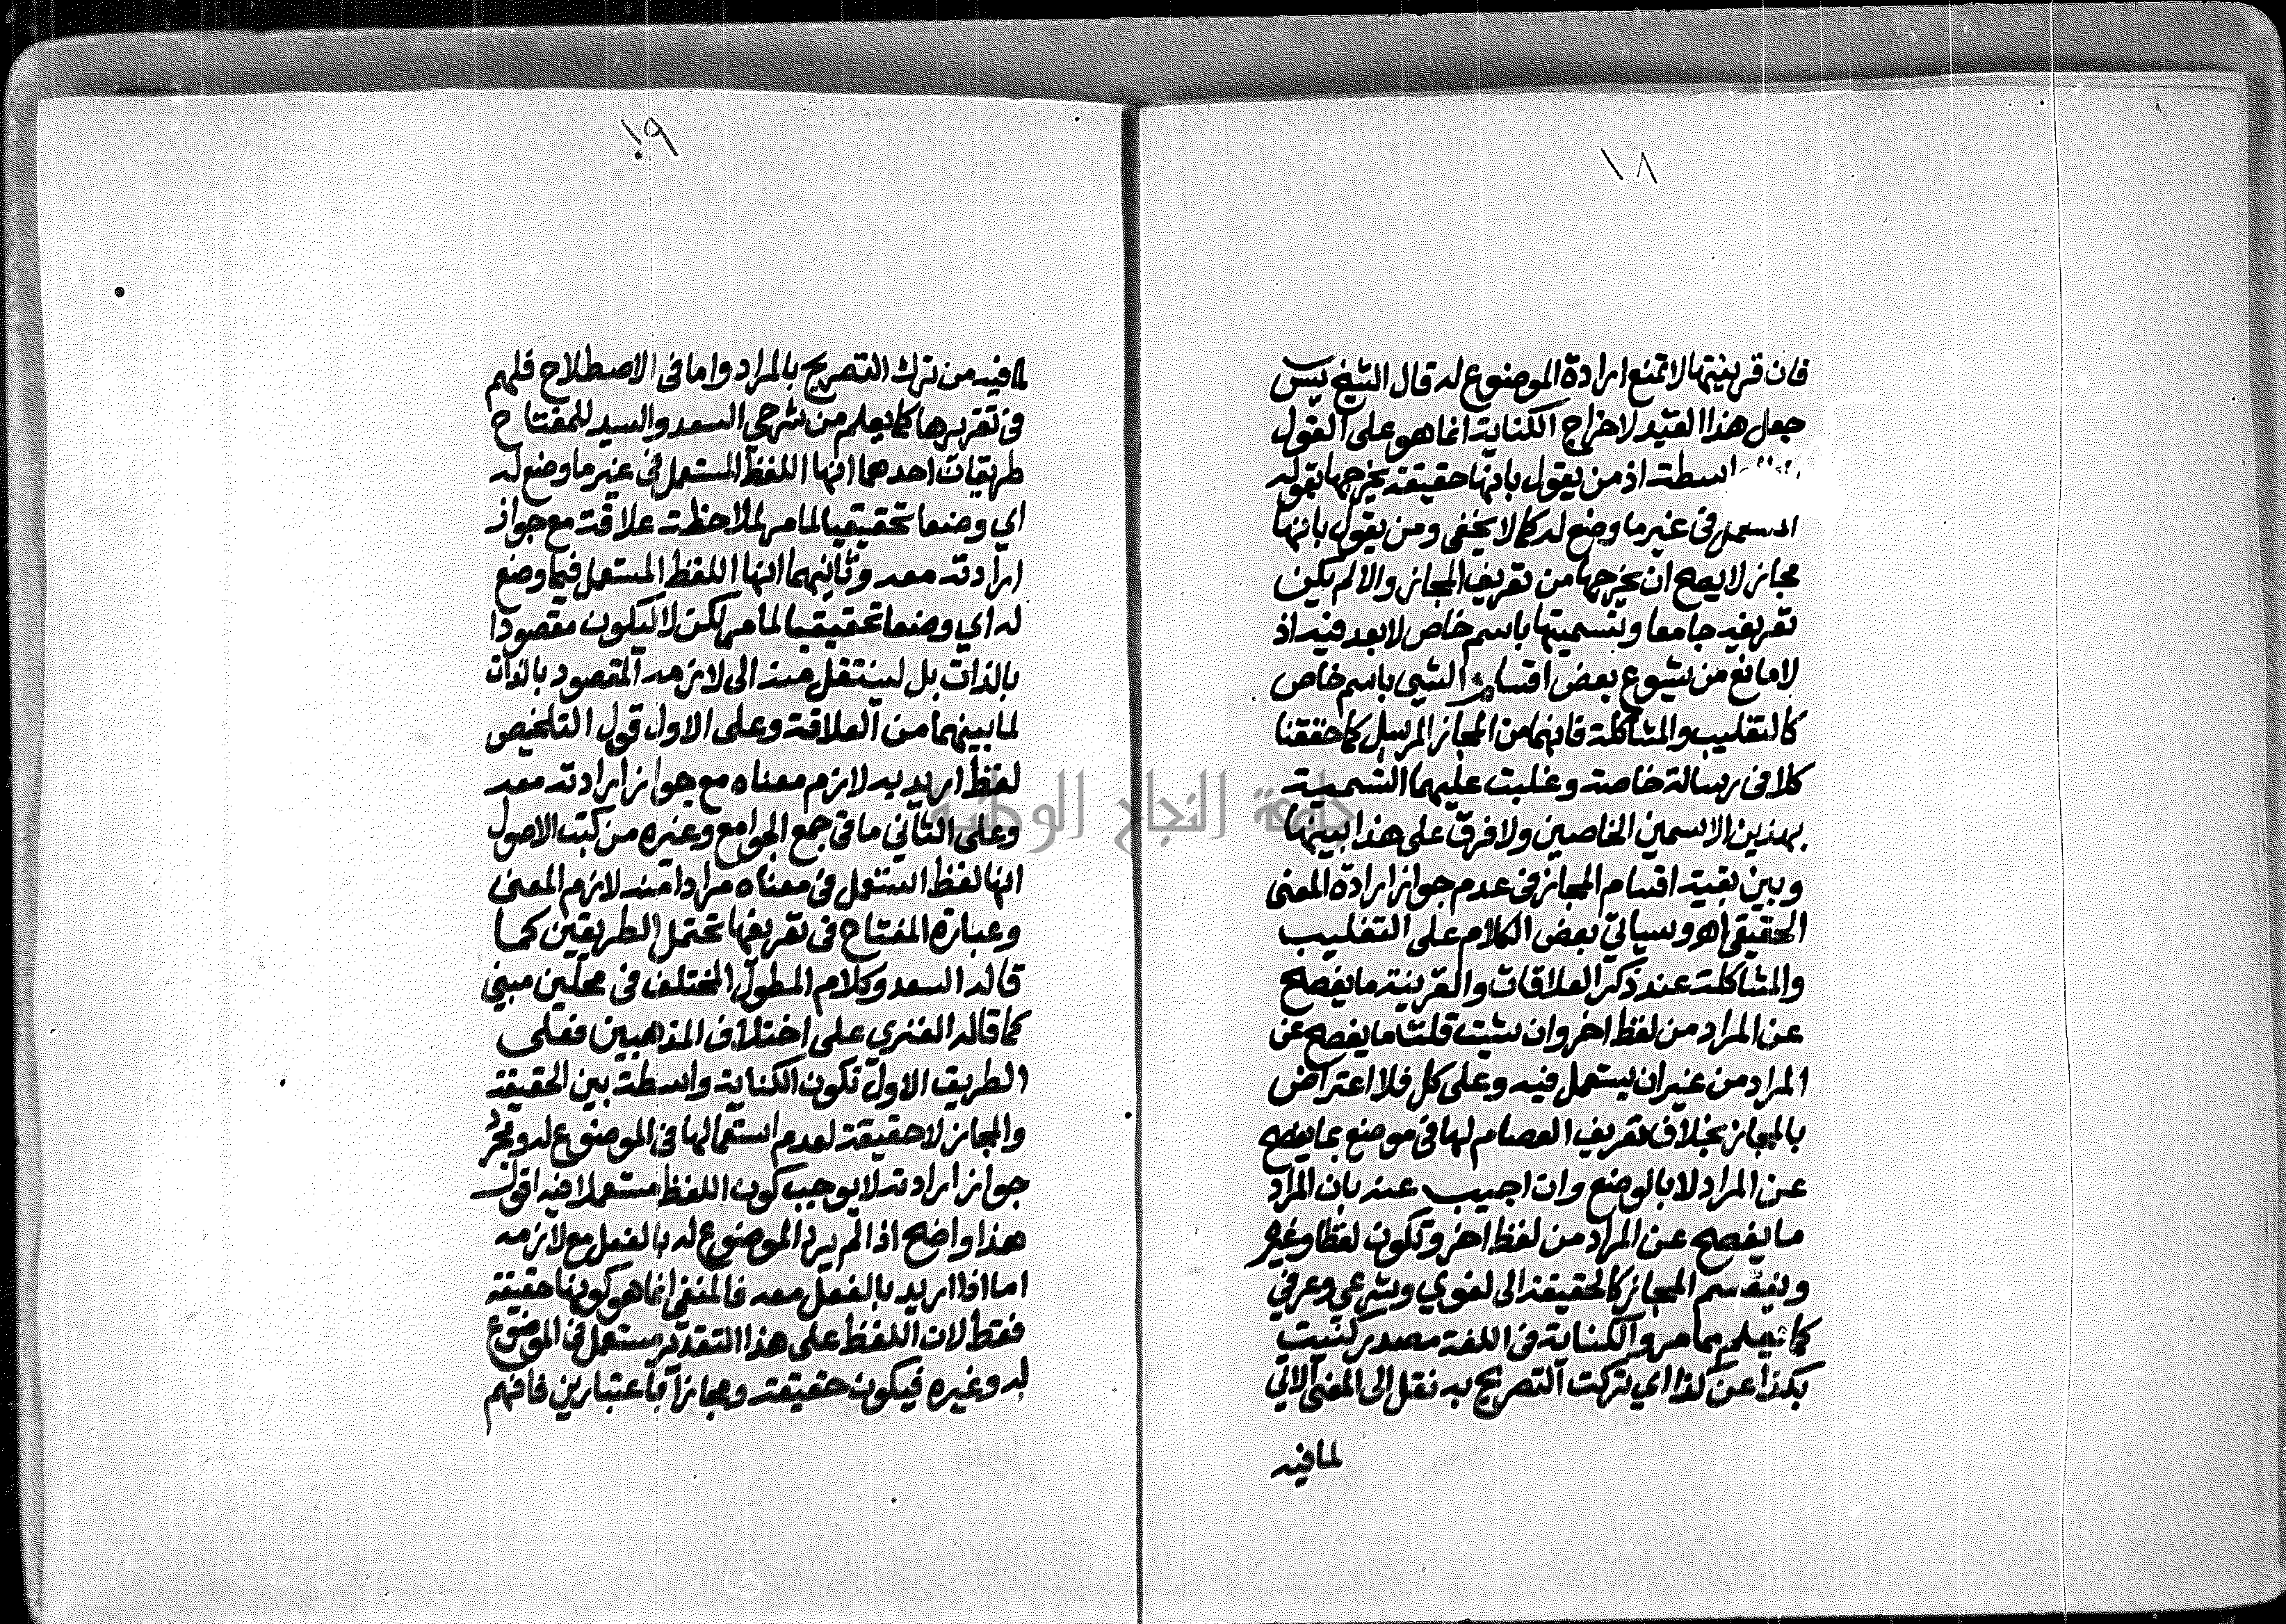 ١٨
فان قرينتها لا تمنع ارادة الموضوع له قال الشيخ يس
جعل هذا القيد لاخراج الكناية انما هو على القول
اسطة اذ من يقول بانها حقيقة يخرجها بقوله
المستعمل فى غير ما وضع له كما لا يخفى ومن يقول بانها
مجاز لا يصح ان يخرجها من تعريف المجاز والا لم يكن
تعريفه جامعا وتسميتها باسم خاص لا بعد فيه اذ
لا مانع من شيوع بعض اقسام الشي باسم خاص
كالتغليب والمشاكلة فانهما من المجاز المرسل كما حققنا
كلا فى رسالة خاصة وغلبت عليهما التسمية
بهذين الاسمين الخاصين ولا فرق على هذا بينها
وبين بقية اقسام المجاز فى عدم جواز ارادة المعنى
الحقيقى اهـ وسياتي بعض الكلام على التغليب
والمشاكلة عند ذكر العلاقات والقرينة ما يفصح
عن المراد من لفظ اخر وان شئت قلت ما يفصح عن
المراد من غير ان يستعمل فيه وعلى كل فلا اعتراض
بالمجاز بخلاف تعريف العصام لها فى موضع بما يفصح
عن المراد لا بالوضع وان اجيب عنه بان المراد
ما يفصح عن المراد من لفظ اخر وتكون لفظا وغير
وينقسم المجاز كالحقيقة الى لغوي وشرعي وعرفي
كما يعلم مما مر والكناية فى اللغة مصدر كنيت
بكذا عن كذا اي تركت التصريح به نقل الى المعنى الاتي
لما فيه
١٩
لما فيه من ترك التصريح بالمراد واما فى الاصطلاح فلهم
فى تقريرها كما يعلم من شرحي السعد والسيد للمفتاح
طريقان احدهما انها اللفظ المستعمل فى غير ما وضع له
اي وضعا تحقيقيا لما مر لملاحظة علاقة مع جواز
ارادته معه وثانيهما انها اللفظ المستعمل فيما وضع
له اي وضعا تحقيقيا لما مر لكن لا ليكون مقصودا
بالذات بل لينتقل منه الى لازمه المقصود بالذات
لما بينهما من العلاقة وعلى الاول قول التلخيص
لفظ اريد به لازم معناه مع جواز ارادته معه
وعلى الثاني ما فى جمع الجوامع وغيره من كتب الاصول
انها لفظ استعمل فى معناه مرادا منه لازم المعنى
وعبارة المفتاح فى تعريفها تحتمل الطريقين كما
قاله السعد وكلام المطول المختلف فى محلين مبني
كما قاله الفنري على اختلاف المذهبين فعلى
الطريق الاول تكون الكناية واسطة بين الحقيقة
والمجاز لا حقيقة لعدم استعمالها فى الموضوع له ومجرد
جواز ارادته لا يوجب كون اللفظ مستعملا فيه اقول
هذا واضح اذا لم يرد الموضوع له بالفعل مع لازمه
اما اذا اريد بالفعل معه فالمنفى انما هو كونها حقيقة
فقط لان اللفظ على هذا التقدير مستعمل فى الموضوع
له وغيره فيكون حقيقة ومجازا باعتبارين فافهم
جامعة النجاح الوطنية